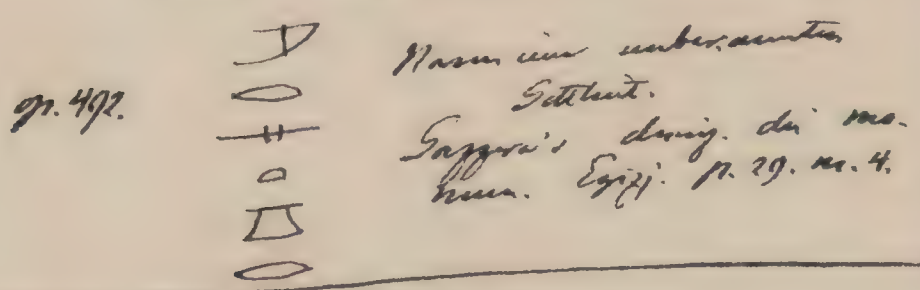 p. 492.
Name einer unbekannten
Gottheit.
Gazzera's descriz. dei mo-
num. Egizj. p. 29. n. 4.